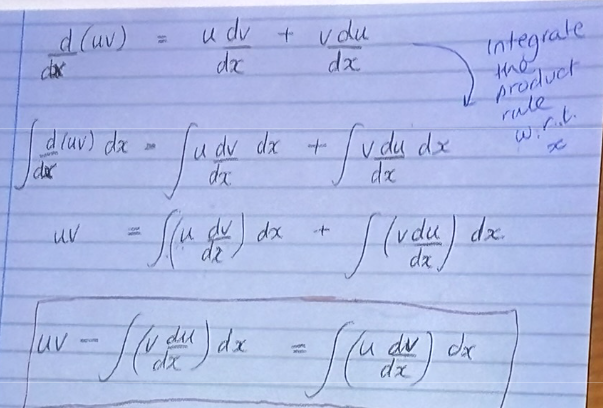 d/dx (uv) = u dv/dx + v du/dx
Integrate
the
product
rule
w.r.t.
x
∫ d/dx (uv) dx = ∫ u dv/dx dx + ∫ v du/dx dx
uv = ∫(u dv/dx) dx + ∫(v du/dx) dx.
uv - ∫(v du/dx) dx = ∫(u dv/dx) dx